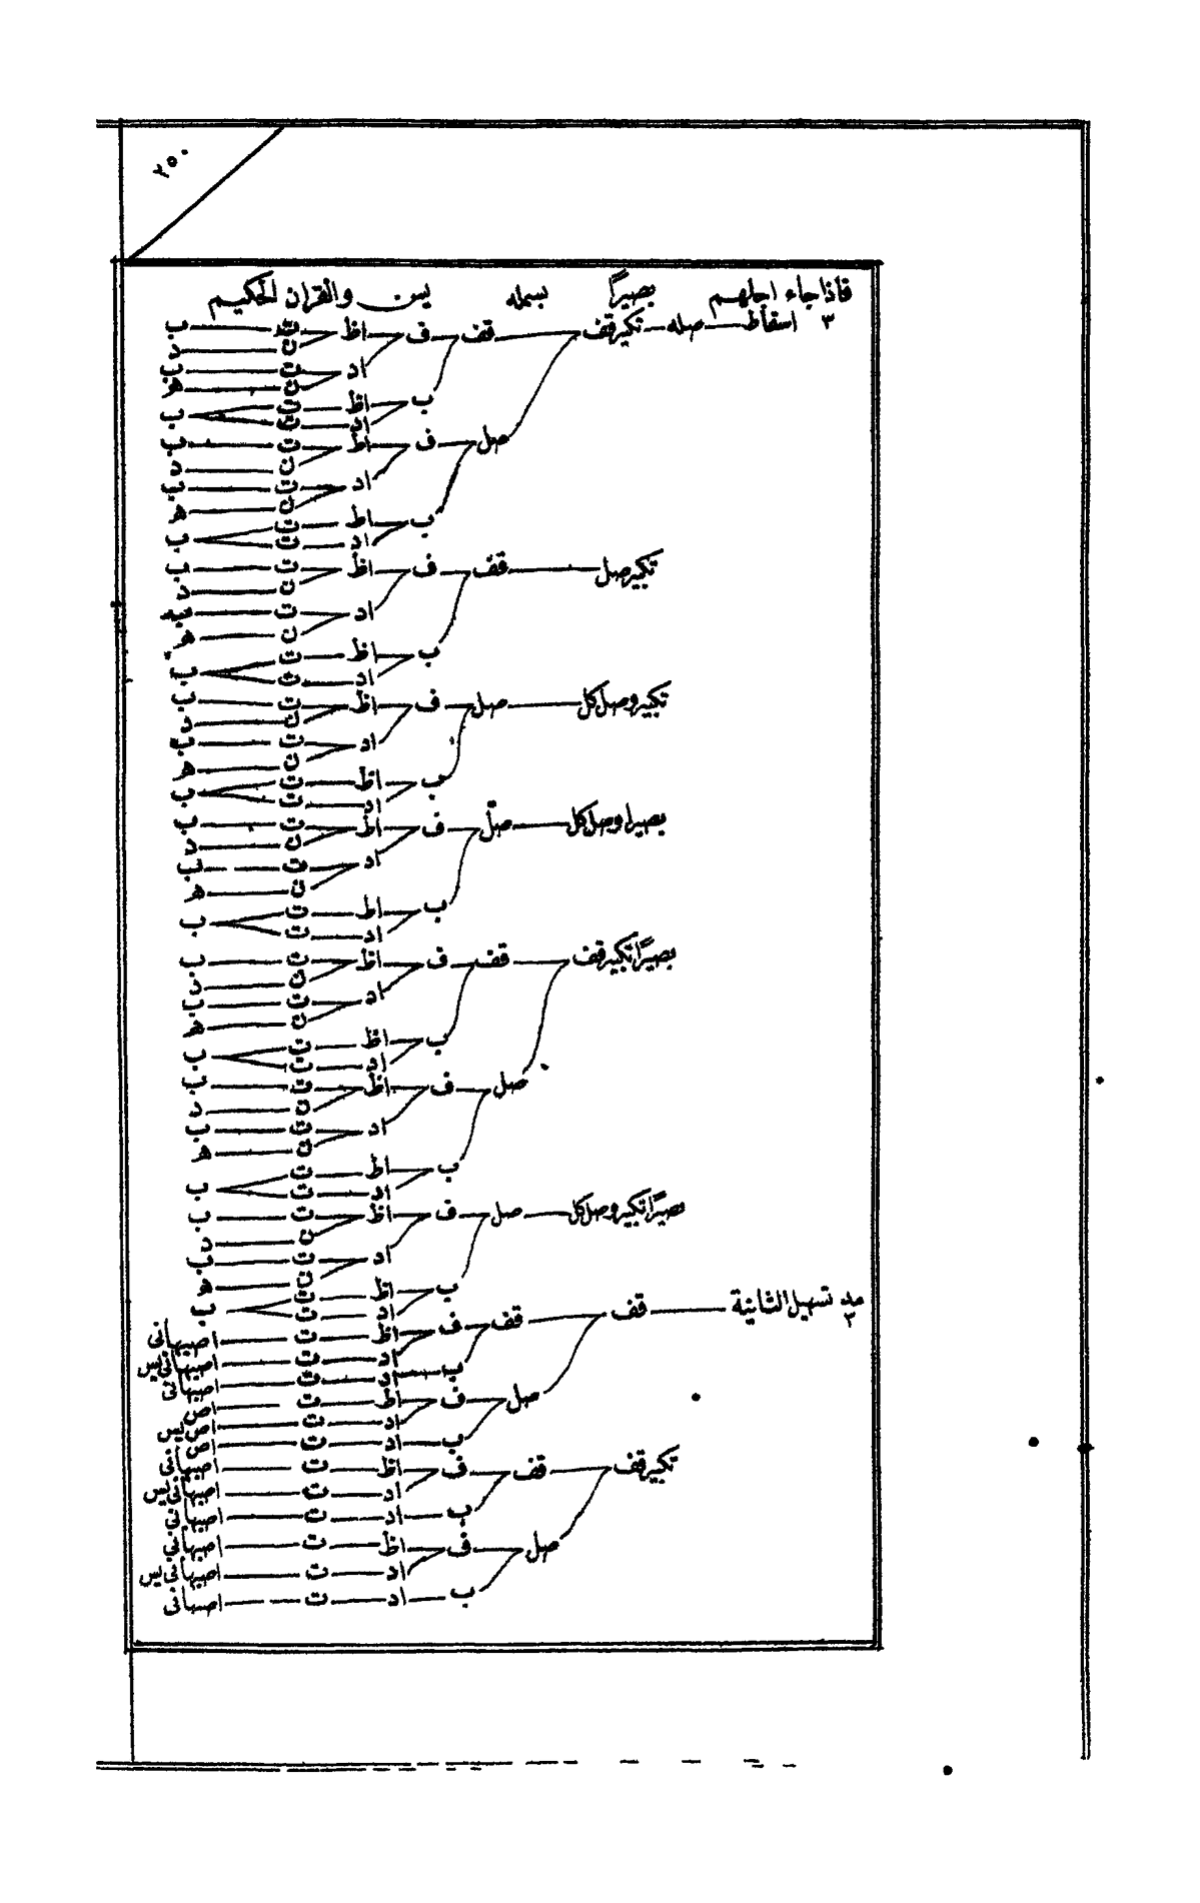 ٢٥٠
فاذا جاء اجلهم بصيراً بسمله يس والقران الحكيم
٣ اسقاط صله تكبير قف قف ف اظ ت ب
ن د
اد ت ب
ن ه
ب اظ ت ب
اد ت
صل ف اظ ت ب
ن د
اد ت ب
ن ه
ب اظ ت ب
اد ت
تكبير صل قف ف اظ ت ب
ن د
اد ت
ن ه
ب اظ ت ب
اد ت
تكبير وصل كل صل ف اظ ت ب
ن د
اد ت ب
ن ه
ب اظ ت ب
اد ت
بصيرا وصل كل صل ف اظ ت ب
ن د
اد ت ب
ن ه
ب اظ ت ب
اد ت
بصيراً تكبير قف قف ف اظ ت ب
ن د
اد ت ب
ن ه
ب اظ ت ب
اد ت
صل ف اظ ت ب
ن د
اد ت ب
ن ه
ب اظ ت ب
اد ت
بصيراً تكبير وصل كل صل ف اظ ت ب
ن د
اد ت ب
ن ه
ب اظ ت ب
اد ت
مد تسهيل الثانية ٣ قف قف ف اظ ت اصبهانى
اد ت اصبهانى يس
ب اد ت اصبهانى
صل ف اظ ت اص
اد ت اص يس
ب اد ت اص
تكبير قف قف ف اظ ت اصبهانى
اد ت اصبهانى يس
ب اد ت اصبهانى
صل ف اظ ت اصبهانى
اد ت اصبهانى يس
ب اد ت اصبهانى